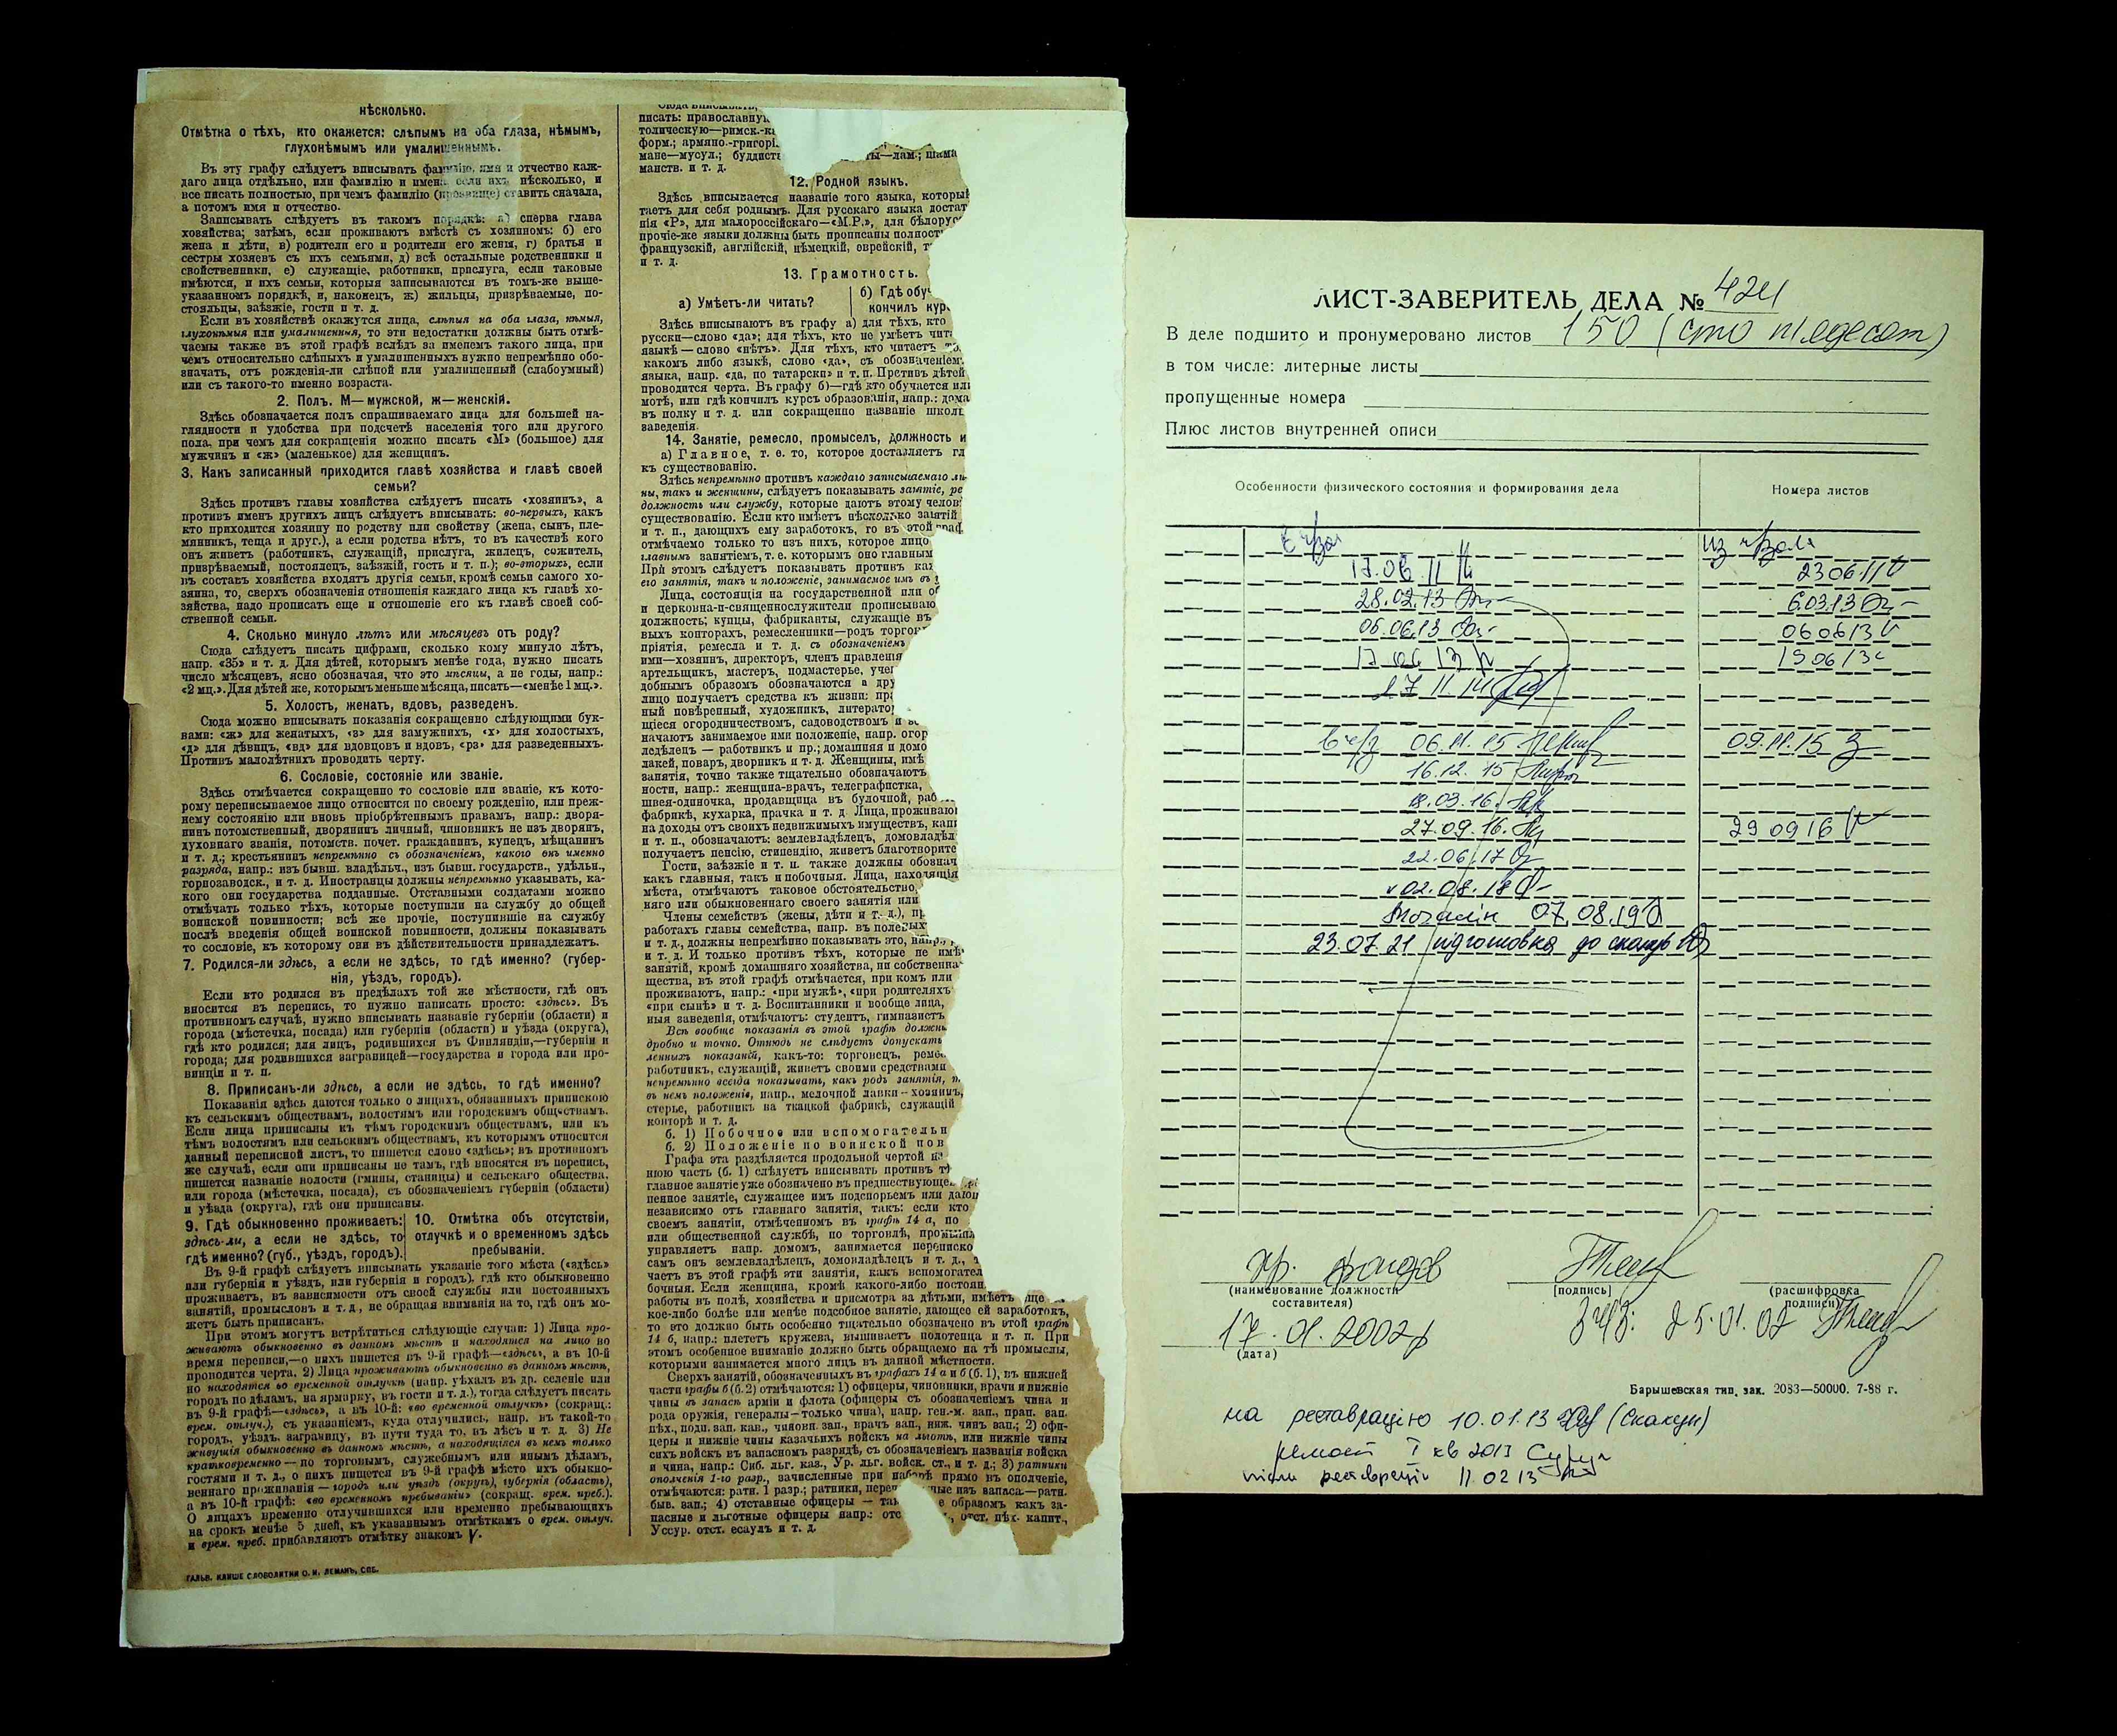 нѣсколько.
Отмѣтка о тѣхъ, кто окажется: слѣпымъ на оба глаза, нѣмымъ,
глухонѣмымъ или умалишеннымъ.
Въ эту графу слѣдуетъ вписывать фамилію, имя и отчество каж-
даго лица отдѣльно, или фамилію и имена если ихъ нѣсколько, и
все писать полностью, при чемъ фамилію (прозвище) ставить сначала,
а потомъ имя и отчество.
Записывать слѣдуетъ въ такомъ порядкѣ: а) сперва глава
хозяйства; затѣмъ, если проживаютъ вмѣстѣ съ хозяиномъ: б) его
жена и дѣти, в) родители его и родители его жены, г) братья и
сестры хозяевъ съ ихъ семьями, д) всѣ остальные родственники и
свойственники, е) служащіе, работники, прислуга, если таковые
имѣются, и ихъ семьи, которыя записываются въ томъ-же выше-
указанномъ порядкѣ, и, наконецъ, ж) жильцы, призрѣваемые, по-
стояльцы, заѣзжіе, гости и т. д.
Если въ хозяйствѣ окажутся лица, слѣпыя на оба глаза, нѣмыя,
глухонѣмыя или умалишенныя, то эти недостатки должны быть отмѣ-
чаемы также въ этой графѣ вслѣдъ за именемъ такого лица, при
чемъ относительно слѣпыхъ и умалишенныхъ нужно непремѣнно обо-
значать, отъ рожденія-ли слѣпой или умалишенный (слабоумный)
или съ такого-то именно возраста.
2. Полъ. М—мужской, ж—женскій.
Здѣсь обозначается полъ спрашиваемаго лица для большей на-
глядности и удобства при подсчетѣ населенія того или другого
пола, при чемъ для сокращенія можно писать «М» (большое) для
мужчинъ и «ж» (маленькое) для женщинъ.
3. Какъ записанный приходится главѣ хозяйства и главѣ своей
семьи?
Здѣсь противъ главы хозяйства слѣдуетъ писать «хозяинъ», а
противъ именъ другихъ лицъ слѣдуетъ вписывать: во-первыхъ, какъ
кто приходится хозяину по родству или свойству (жена, сынъ, пле-
мянникъ, теща и друг.), а если родства нѣтъ, то въ качествѣ кого
онъ живетъ (работникъ, служащій, прислуга, жилецъ, сожитель,
призрѣваемый, постоялецъ, заѣзжій, гость и т. п.); во-вторыхъ, если
въ составъ хозяйства входятъ другія семьи, кромѣ семьи самого хо-
зяина, то, сверхъ обозначенія отношенія каждаго лица къ главѣ хо-
зяйства, надо прописать еще и отношеніе его къ главѣ своей соб-
ственной семьи.
4. Сколько минуло лѣтъ или мѣсяцевъ отъ роду?
Сюда слѣдуетъ писать цифрами, сколько кому минуло лѣтъ,
напр. «35» и т. д. Для дѣтей, которымъ менѣе года, нужно писать
число мѣсяцевъ, ясно обозначая, что это мѣсяцы, а не годы, напр.:
«2 мц.». Для дѣтей же, которымъ меньше мѣсяца, писать—«менѣе 1 мц.».
5. Холостъ, женатъ, вдовъ, разведенъ.
Сюда можно вписывать показанія сокращенно слѣдующими бук-
вами: «ж» для женатыхъ, «з» для замужнихъ, «х» для холостыхъ,
«д» для дѣвицъ, «вд» для вдовцовъ и вдовъ, «рз» для разведенныхъ.
Противъ малолѣтнихъ проводить черту.
6. Сословіе, состояніе или званіе.
Здѣсь отмѣчается сокращенно то сословіе или званіе, къ кото-
рому переписываемое лицо относится по своему рожденію, или преж-
нему состоянію или вновь пріобрѣтеннымъ правамъ, напр.: дворя-
нинъ потомственный, дворянинъ личный, чиновникъ не изъ дворянъ,
духовнаго званія, потомств. почет. гражданинъ, купецъ, мѣщанинъ
и т. д.; крестьянинъ непремѣнно съ обозначеніемъ, какого онъ именно
разряда, напр.: изъ бывш. владѣльч., изъ бывш. государств., удѣльн.,
горнозаводск., и т. д. Иностранцы должны непремѣнно указывать, ка-
кого они государства подданные. Отставными солдатами можно
отмѣчать только тѣхъ, которые поступили на службу до общей
воинской повинности; всѣ же прочіе, поступившіе на службу
послѣ введенія общей воинской повинности, должны показывать
то сословіе, къ которому они въ дѣйствительности принадлежатъ.
7. Родился-ли здѣсь, а если не здѣсь, то гдѣ именно? (губер-
нія, уѣздъ, городъ).
Если кто родился въ предѣлахъ той же мѣстности, гдѣ онъ
вносится въ перепись, то нужно написать просто: «здѣсь». Въ
противномъ случаѣ, нужно вписывать названіе губерніи (области) и
города (мѣстечка, посада) или губерніи (области) и уѣзда (округа),
гдѣ кто родился; для лицъ, родившихся въ Финляндіи,—губерніи и
города; для родившихся заграницей—государства и города или про-
винціи и т. п.
8. Приписанъ-ли здѣсь, а если не здѣсь, то гдѣ именно?
Показанія здѣсь даются только о лицахъ, обязанныхъ припискою
къ сельскимъ обществамъ, волостямъ или городскимъ обществамъ.
Если лица приписаны къ тѣмъ городскимъ обществамъ, или къ
тѣмъ волостямъ или сельскимъ обществамъ, къ которымъ относится
данный переписной листъ, то пишется слово «здѣсь»; въ противномъ
же случаѣ, если они приписаны не тамъ, гдѣ вносятся въ перепись,
пишется названіе волости (гмины, станицы) и сельскаго общества,
или города (мѣстечка, посада), съ обозначеніемъ губерніи (области)
и уѣзда (округа), гдѣ они приписаны.
9. Гдѣ обыкновенно проживаетъ:
здѣсь-ли, а если не здѣсь, то
гдѣ именно? (губ., уѣздъ, городъ).
10. Отмѣтка объ отсутствіи,
отлучкѣ и о временномъ здѣсь
пребываніи.
Въ 9-й графѣ слѣдуетъ вписывать указаніе того мѣста («здѣсь»
или губернія и уѣздъ, или губернія и городъ), гдѣ кто обыкновенно
проживаетъ, въ зависимости отъ своей службы или постоянныхъ
занятій, промысловъ и т. д., не обращая вниманія на то, гдѣ онъ мо-
жетъ быть приписанъ.
При этомъ могутъ встрѣтиться слѣдующіе случаи: 1) Лица про-
живаютъ обыкновенно въ данномъ мѣстѣ и находятся на лицо во
время переписи,—о нихъ пишется въ 9-й графѣ—«здѣсь», а въ 10-й
проводится черта. 2) Лица проживаютъ обыкновенно въ данномъ мѣстѣ,
но находятся во временной отлучкѣ (напр. уѣхалъ въ др. селеніе или
городъ по дѣламъ, на ярмарку, въ гости и т. д.), тогда слѣдуетъ писать
въ 9-й графѣ—«здѣсь», а въ 10-й: «во временной отлучкѣ» (сокращ.:
врем. отлуч.), съ указаніемъ, куда отлучились, напр. въ такой-то
городъ, уѣздъ, заграницу, въ пути туда то, въ лѣсъ и т. д. 3) Не
живущія обыкновенно въ данномъ мѣстѣ, а находящіяся въ немъ только
кратковременно — по торговымъ, служебнымъ или инымъ дѣламъ,
гостями и т. д., о нихъ пишется въ 9-й графѣ мѣсто ихъ обыкно-
веннаго проживанія — городъ или уѣздъ (округъ), губернія (область),
а въ 10-й графѣ: «во временномъ пребываніи» (сокращ. врем. преб.).
О лицахъ временно отлучившихся или временно пребывающихъ
на срокъ менѣе 5 дней, къ указаннымъ отмѣткамъ о врем. отлуч.
и врем. преб. прибавляютъ отмѣтку знакомъ V.
ГАЛЬВ. КЛИШЕ СЛОВОЛИТНИ О. И. ЛЕМАНЪ, СПБ.
писать: православную
толическую—римск.-к
форм.; армяно.-григорі
мане—мусул.; буддисты—лам.; шама
манств. и т. д.
12. Родной языкъ.
Здѣсь вписывается названіе того языка, которы
таетъ для себя роднымъ. Для русскаго языка достат
нія «Р», для малороссійскаго—«М.Р.», для бѣлорус
прочіе-же языки должны быть прописаны полност
французскій, англійскій, нѣмецкій, еврейскій, т
и т. д.
13. Грамотность.
а) Умѣетъ-ли читать?
б) Гдѣ обу
кончилъ кур
Здѣсь вписываютъ въ графу а) для тѣхъ, кто
русски—слово «да»; для тѣхъ, кто не умѣетъ чит
языкѣ — слово «нѣтъ». Для тѣхъ, кто читаетъ
какомъ либо языкѣ, слово «да», съ обозначеніем
языка, напр. «да, по татарски» и т. п. Противъ дѣтей
проводится черта. Въ графу б)—гдѣ кто обучается ил
мотѣ, или гдѣ кончилъ курсъ образованія, напр.: дома
въ полку и т. д. или сокращенно названіе школ
заведенія.
14. Занятіе, ремесло, промыселъ, должность и
а) Главное, т. е. то, которое доставляетъ гл
къ существованію.
Здѣсь непремѣнно противъ каждаго записываемаго ли
ны, такъ и женщины, слѣдуетъ показывать занятіе, ре
должность или службу, которые даютъ этому челов
существованію. Если кто имѣетъ нѣсколько занятій
и т. п., дающихъ ему заработокъ, то въ этой граф
отмѣчаемо только то изъ нихъ, которое лицо
главнымъ занятіемъ, т. е. которымъ оно главным
При этомъ слѣдуетъ показывать противъ ка
его занятія, такъ и положеніе, занимаемое имъ въ
Лица, состоящія на государственной или об
и церковна-и-священнослужители прописываю
должность; купцы, фабриканты, служащіе въ
выхъ конторахъ, ремесленники—родъ торгов
пріятія, ремесла и т. д. съ обозначеніемъ
ими—хозяинъ, директоръ, членъ правленія
артельщикъ, мастеръ, подмастерье, учен
добнымъ образомъ обозначаются а дру
лицо получаетъ средства къ жизни: пр
ный повѣренный, художникъ, литерато
щіеся огородничествомъ, садоводствомъ и
начаютъ занимаемое ими положеніе, напр. огор
ледѣлецъ — работникъ и пр.; домашняя и домо
лакей, поваръ, дворникъ и т. д. Женщины, имѣ
занятія, точно также тщательно обозначаютъ
ности, напр.: женщина-врачъ, телеграфистка,
швея-одиночка, продавщица въ булочной, раб
фабрикѣ, кухарка, прачка и т. д. Лица, проживаю
на доходы отъ своихъ недвижимыхъ имуществъ, кап
и т. п., обозначаютъ: землевладѣлецъ, домовладѣл
получаетъ пенсію, стипендію, живетъ благотворите
Гости, заѣзжіе и т. п. также должны обознач
какъ главныя, такъ и побочныя. Лица, находящія
мѣста, отмѣчаютъ таковое обстоятельство,
няго или обыкновеннаго своего занятія или
Члены семействъ (жены, дѣти и т. д.), п
работахъ главы семейства, напр. въ полевыхъ
и т. д., должны непремѣнно показывать это, напр.,
занятій, кромѣ домашняго хозяйства, ни собственна
щества, въ этой графѣ отмѣчается, при комъ или
проживаютъ, напр.: «при мужѣ», «при родителяхъ
«при сынѣ» и т. д. Воспитанники и вообще лица,
ныя заведенія, отмѣчаютъ: студентъ, гимназистъ
Всѣ вообще показанія въ этой графѣ должны
дробно и точно. Отнюдь не слѣдуетъ допускать
ленныхъ показаній, какъ-то: торговецъ, реме
работникъ, служащій, живетъ своими средствами
непремѣнно всегда показывать, какъ родъ занятія,
въ немъ положеніе, напр., мелочной лавки—хозяинъ,
стерье, работникъ на ткацкой фабрикѣ, служащій
конторѣ и т. д.
б. 1) Побочное или вспомогательн
б. 2) Положеніе по воинской пов
Графа эта раздѣляется продольной чертой на
нюю часть (б. 1) слѣдуетъ вписывать противъ
главное занятіе уже обозначено въ предшествующе
пенное занятіе, служащее имъ подспорьемъ или даю
независимо отъ главнаго занятія, такъ: если кто
своемъ занятіи, отмѣченномъ въ графѣ 14 а, по
или общественной службѣ, по торговлѣ, промы
управляетъ напр. домомъ, занимается переписко
самъ онъ землевладѣлецъ, домовладѣлецъ и т. д.,
чаетъ въ этой графѣ эти занятія, какъ вспомогател
бочныя. Если женщина, кромѣ какого-либо постоян
работы въ полѣ, хозяйства и присмотра за дѣтьми, имѣетъ еще
кое-либо болѣе или менѣе подсобное занятіе, дающее ей заработокъ,
то это должно быть особенно тщательно обозначено въ этой графѣ
14 б, напр.: плететъ кружева, вышиваетъ полотенца и т. п. При
этомъ особенное вниманіе должно быть обращаемо на тѣ промыслы,
которыми занимается много лицъ въ данной мѣстности.
Сверхъ занятій, обозначенныхъ въ графахъ 14 а и б (б. 1), въ нижней
части графы б (б. 2) отмѣчаются: 1) офицеры, чиновники, врачи и нижніе
чины въ запасѣ арміи и флота (офицеры съ обозначеніемъ чина и
рода оружія, генералы—только чина), напр. ген.-м. зап., прап. зап.
пѣх., подп. зап. кав., чиновн. зап., врачъ зап., ниж. чинъ зап.; 2) офи-
церы и нижніе чины казачьихъ войскъ на льготѣ, или нижніе чины
сихъ войскъ въ запасномъ разрядѣ, съ обозначеніемъ названія войска
и чина, напр.: Сиб. льг. каз., Ур. льг. войск. ст., и т. д.; 3) ратники
ополченія 1-го разр., зачисленные при наборѣ прямо въ ополченіе,
отмѣчаются: ратн. 1 разр.; ратники, переч ные изъ запаса.—ратн.
быв. зап.; 4) отставные офицеры — та е образомъ какъ за-
пасные и льготные офицеры напр.: отс ., отст. пѣх. капит.,
Уссур. отст. есаулъ и т. д.
ЛИСТ-ЗАВЕРИТЕЛЬ ДЕЛА № 424
В деле подшито и пронумеровано листов 150 (сто п'ядесят)
в том числе: литерные листы
пропущенные номера
Плюс листов внутренней описи
Особенности физического состояния и формирования дела
Номера листов
17.06.11
23 06.11
28.02.13
6.03.13
06.06.13
06 06 13
19 06 13
27 11.14
06.11.15
09.11.15
16.12.15
18.03.16
27.09.16
29 09 16
22.06.17
02.08.18
07.08.19
23.07.21 підготовка до сканув
(наименование должности
составителя)
[подпись]
(расшифровка
подписи)
17.01.2002р
25.01.02
(дата)
Барышевская тип. зак. 2083—50000. 7-88 г.
на реставрацію 10.01.13 (Скакун)
ремонт I кв 2013
після реставрації 11.02 13